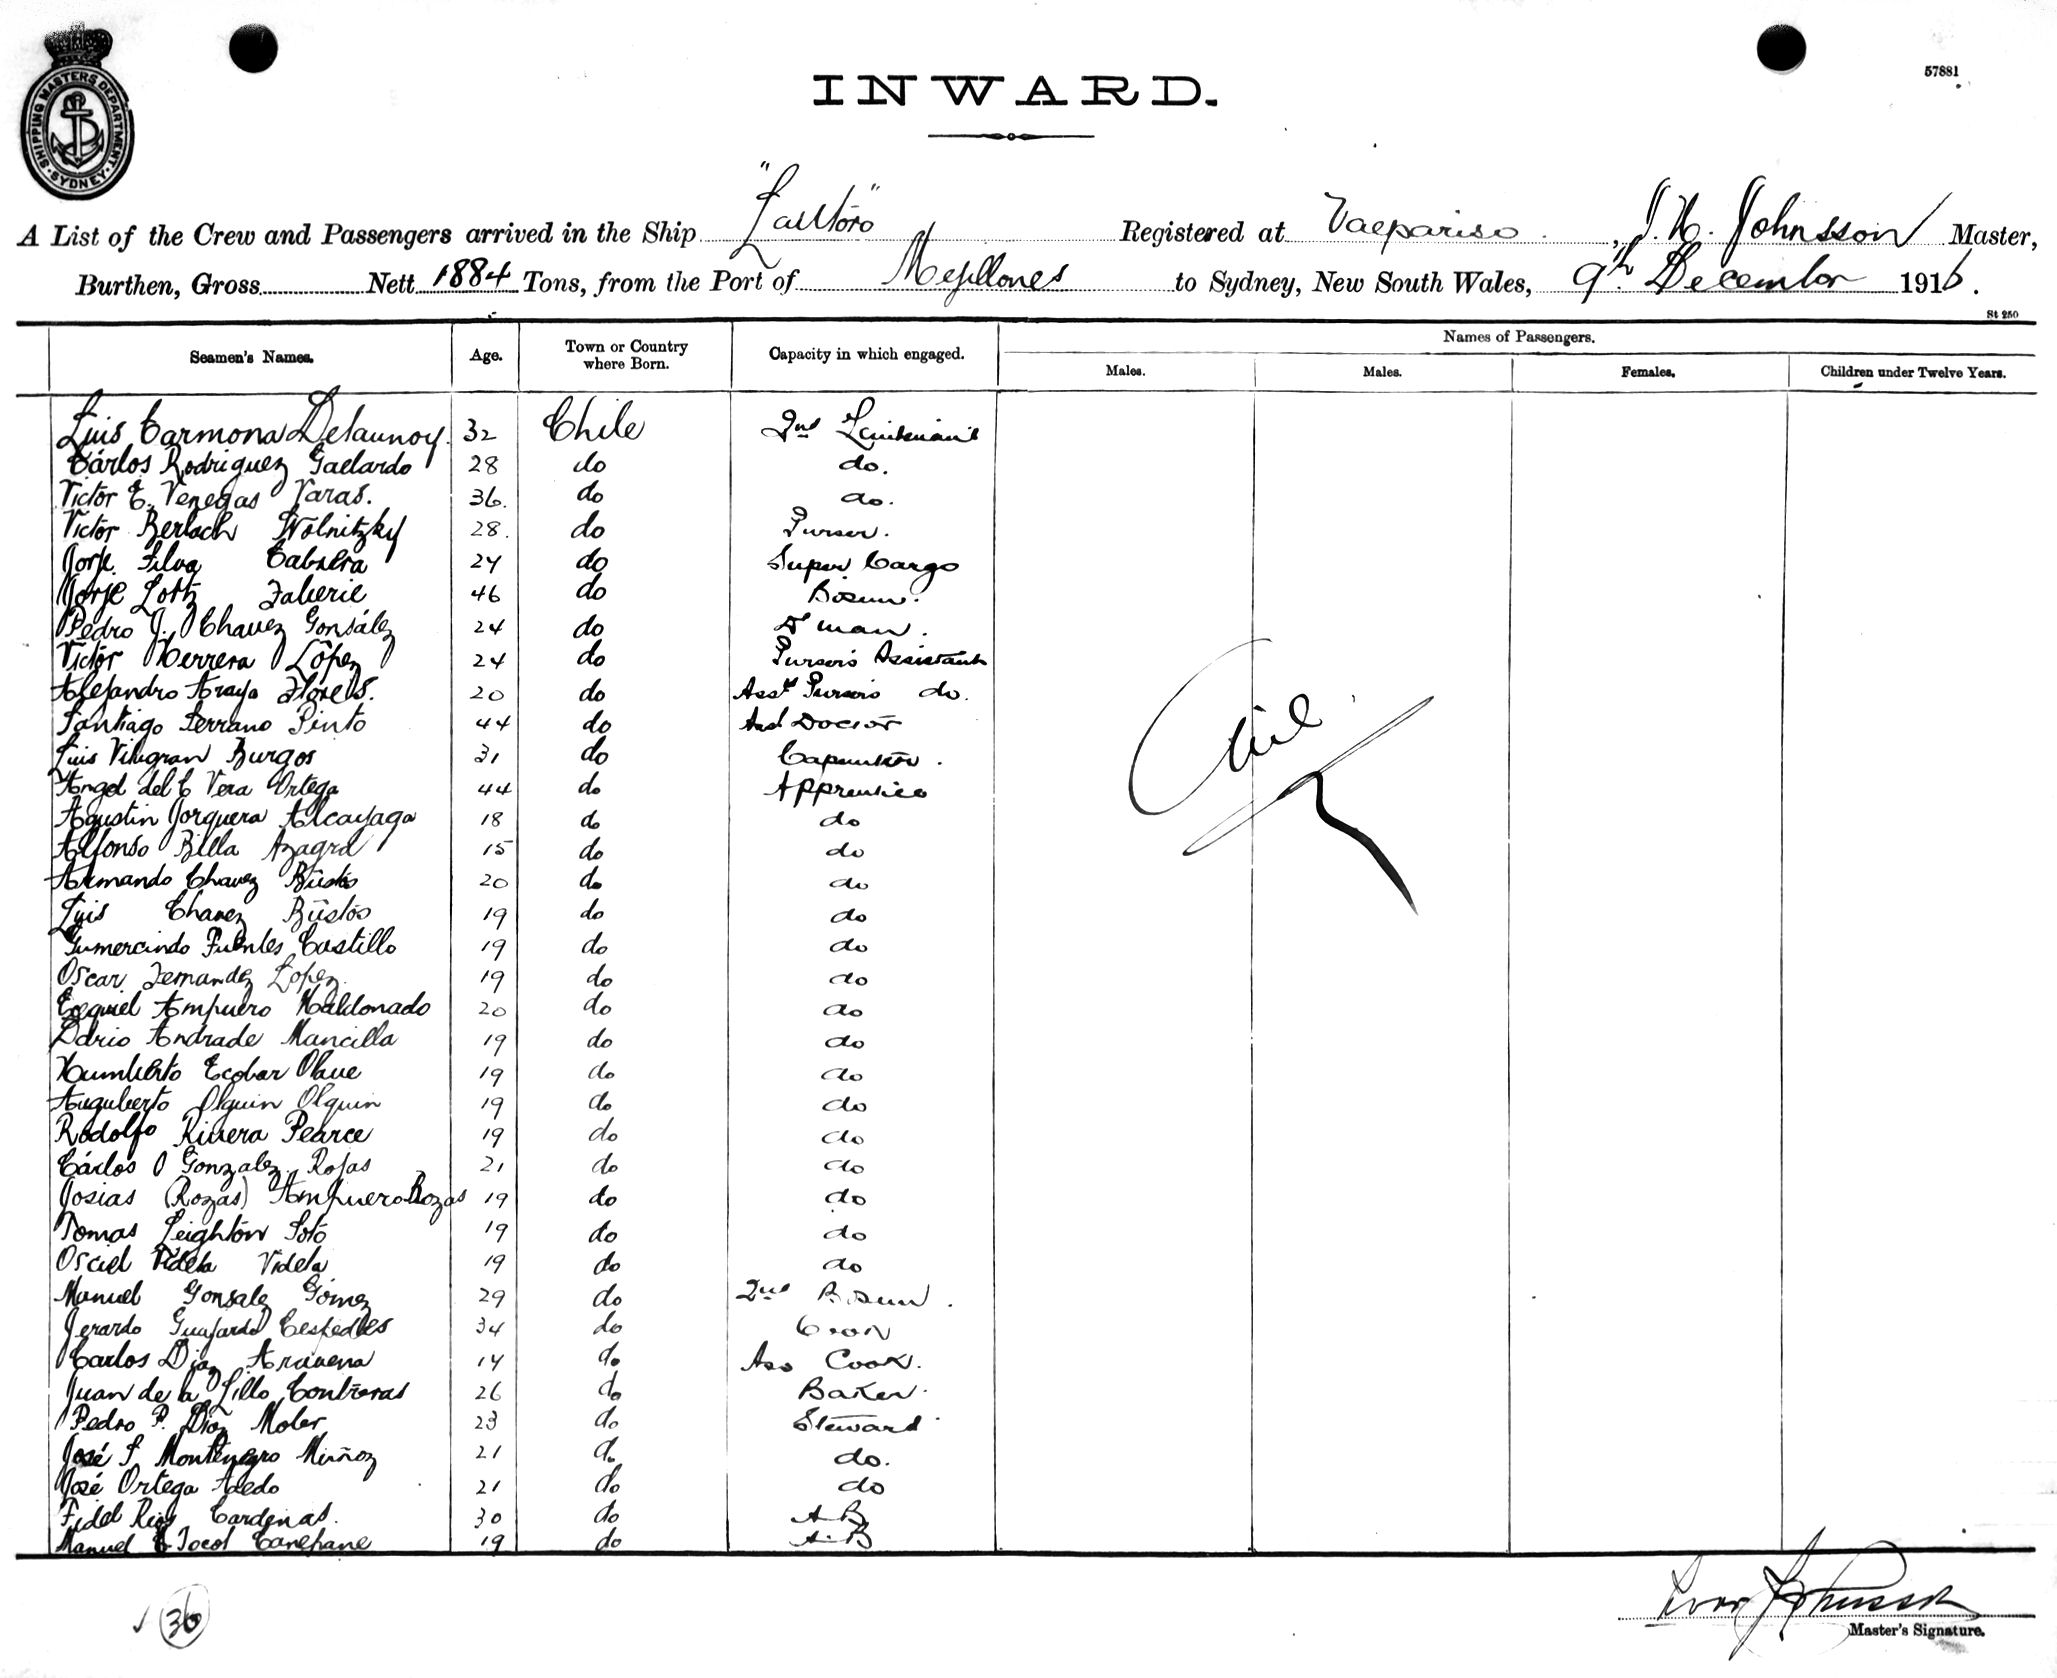 SHIPPING MASTERS DEPARTMENT SYDNEY
57881
INWARD.
A List of the Crew and Passengers arrived in the Ship "Lautöro" Registered at Valpariso, J. H. Johnsson Master,
Burthen, Gross Nett 1884 Tons, from the Port of Mejillones to Sydney, New South Wales, 9th December 1916.
St 250
Seamen's Names. Age. Town or Country where Born. Capacity in which engaged. Names of Passengers.
Males. Males. Females. Children under Twelve Years.
Luis Carmona Delaunoy. 32 Chile 2nd Leiutenant
Cárlos Rodriguez Gaelardo 28 do do.
Victor E. Venegas Varas. 36. do do.
Victor Berlach Wolnitzky 28. do Purser.
Jorje Silva Cabrera 24 do Super Cargo
Jorje Lottz Zaberie 46 do Bosun.
Pedro J. Chavez Gonsález 24 do man.
Victor Herrera López 24 do Pursers Assistant
Alejandro Araya Flores. 20 do Asst Pursers do.
Santiago Serrano Pinto 44 do Asst Doctor
Luis Vilugran Burgos 31 do Capenter.
Angel del C Vera Ortega 44 do Apprentice
Agustin Jorquera Alcayaga 18 do do
Alfonso Billa Azagra 15 do do
Armando Chavez Bustos 20 do do
Luis Chavez Bustos 19 do do
Gumercindo Fuentes Castillo 19 do do
Oscar Fernandez Lopez. 19 do do
Ezequiel Ampuero Maldonado 20 do do
Dario Andrade Mancilla 19 do do
Humberto Ecobar Olave 19 do do
Auguberto Olguin Olguin 19 do do
Rodolfo Rivera Pearce 19 do do
Cárlos O Gonzalez Rojas 21 do do
Josias (Rozas) Ampuero Rozas 19 do do
Tomas Leighton Soto 19 do do
Osciel Videla Videla 19 do do
Manuel Gonsalez Gómez 29 do 2nd Bosun.
Jerardo Guajardo Cespedes 34 do Cook
Carlos Diaz Aravena 14 do Ass Cook.
Juan de la Lillo Contreras 26 do Baker.
Pedro P. Diaz Moler 23 do Steward
José S Montenegro Muñoz 21 do do.
José Ortega Acedo 21 do do
Fidel Rios Cardenas. 30 do A B
Manuel C Tocol Canepane 19 do A.B
Nil
36
Ivar Johnsson
Master's Signature.